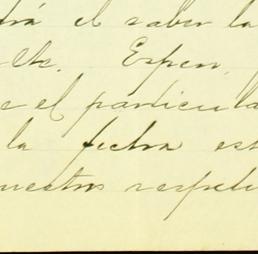 rá el saber la
Esperu
e el particula
la fecha est
nuestros respetu